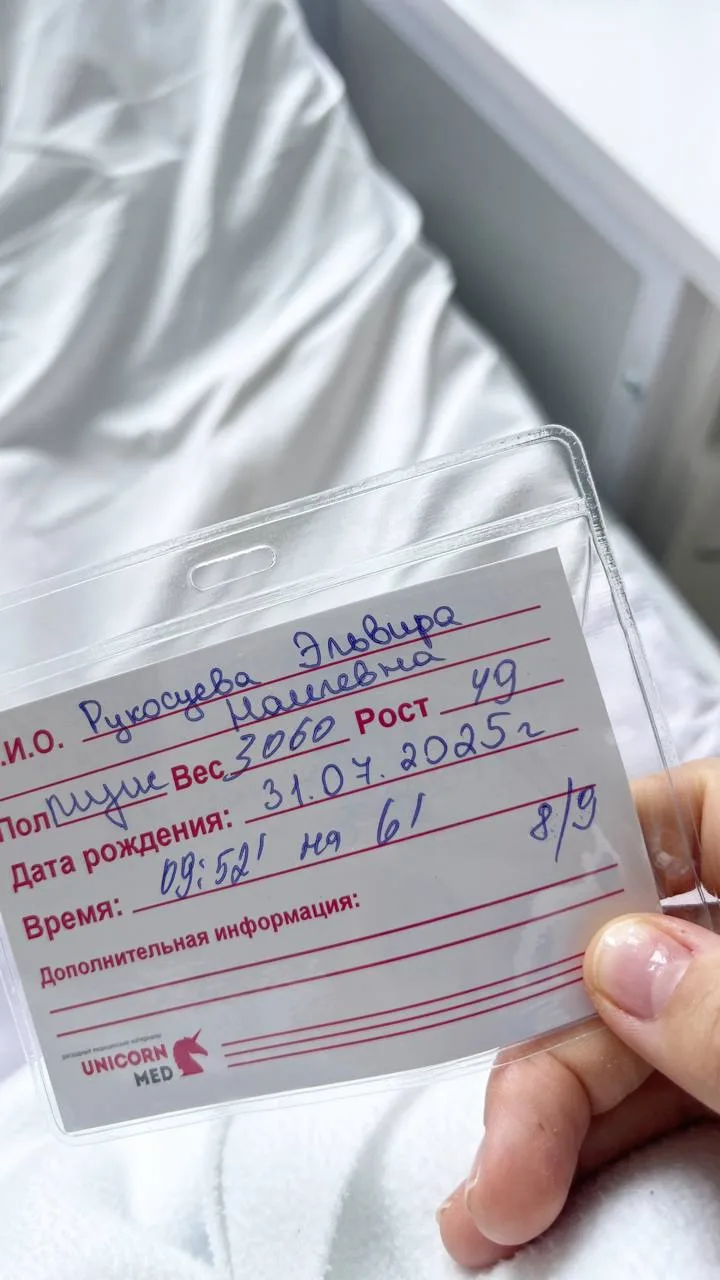 .И.О. Рукосуева Эльвира
Наилевна
Пол муж Вес 3060 Рост 49
Дата рождения: 31.07.2025г
Время: 09:52' на 61 8/9
Дополнительная информация:
UNICORN
MED